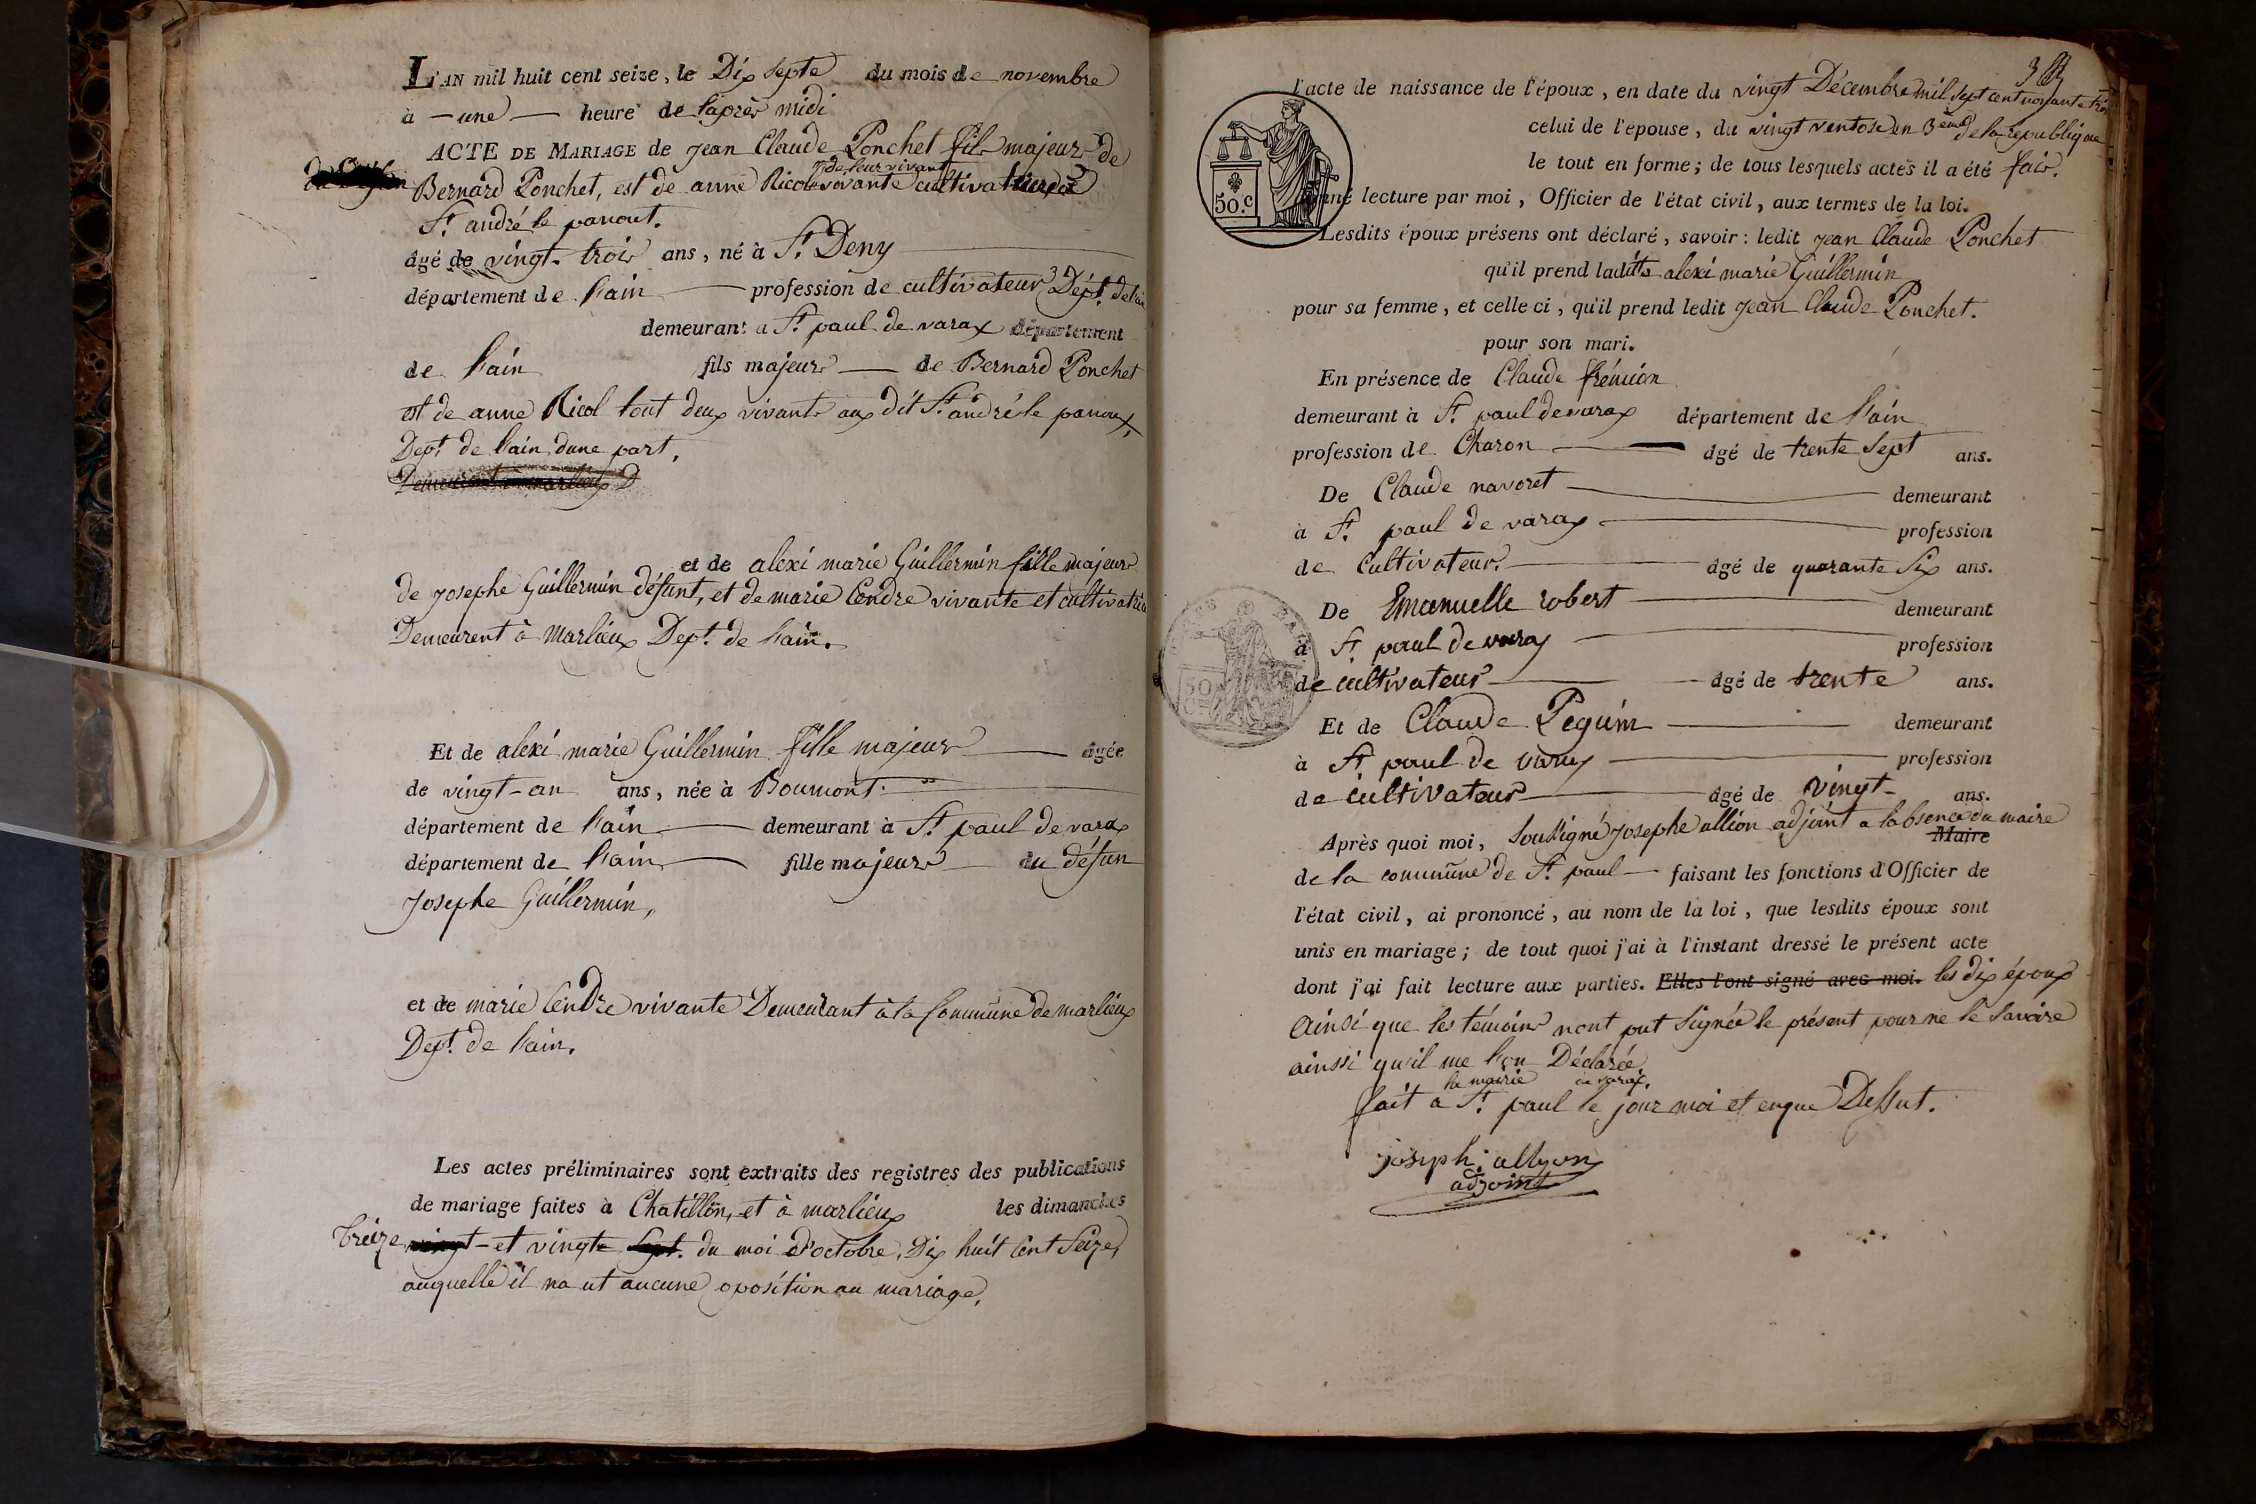 L'AN mil huit cent seize, le Dix septe du mois de novembre
à - une - heure de l'après midi
ACTE DE MARIAGE de jean Claude Ponchet fils majeur de
de leur vivant
Bernard Ponchet, est de anne Ricol vivante cultivateur
St. andré le panout.
âgé de vingt-trois ans, né à St. Deny
département de l'ain profession de cultivateur Dépt. de l'ain
demeurant a St. paul de varax département
de l'ain fils majeur de Bernard Ponchet
est de anne Ricol tout deux vivants aux dit St. andré le panoux,
Dept. de l'ain dune part,
et de alexi marie Guillermin fille majeur
de josephe Guillermin défunt, et de marie Cendre vivante et cultivatrice
Demeurent à Marlieux Dept. de l'ain.
Et de alexi marie Guillermin fille majeur âgée
de vingt-un ans, née à Boumont.
département de l'ain demeurant à St. paul de varax
département de l'ain fille majeure du défun
josephe Guillermin,
et de marie Cendre vivante Demeurant à la Commune de marlieux
Dept. de l'ain.
Les actes préliminaires sont extraits des registres des publications
de mariage faites à Chatillon, et à marlieux les dimanches
treize vingt - et vingte sept. du moi d'octobre, Dix huit cent Seize,
auquelle il na ut aucune oposition au mariage,
3
l'acte de naissance de l'époux, en date du vingt Décembre mil sept cent nonante trois
50.c
celui de l'épouse, du vingt ventose en 3ème de la republique
le tout en forme; de tous lesquels actes il a été fair.
donné lecture par moi, Officier de l'état civil, aux termes de la loi.
Lesdits époux présens ont déclaré, savoir: ledit jean Claude Ponchet
qu'il prend ladits alexi marie Guillermin
pour sa femme, et celle ci, qu'il prend ledit jean Claude Ponchet.
pour son mari.
En présence de Claude frémion
demeurant à St. paul de varax département de l'ain
profession de Charon âgé de trente sept ans.
De Claude navoret demeurant
à St. paul de varax profession
de cultivateur. âgé de quarante six ans.
De Emanuelle robert demeurant
à St. paul de varax profession
de cultivateur âgé de trente ans.
Et de Claude Peguin demeurant
à St. paul de varax profession
de cultivateur âgé de vingt- ans.
Après quoi moi, soussigné josephe allion adjoint a labsence du maire
Maire
de la commune de St. paul faisant les fonctions d'Officier de
l'état civil, ai prononcé, au nom de la loi, que lesdits époux sont
unis en mariage; de tout quoi j'ai à l'instant dressé le présent acte
dont j'ai fait lecture aux parties. Elles l'ont signé avec moi. les dix époux
ainsi que les témoins nont put signée le présent pour ne le savoire
ainsi qu'il me l'on Déclarée
la mairie de varax.
fait a St. paul le jour moi et enque Dessut.
joseph allyon
adjoint